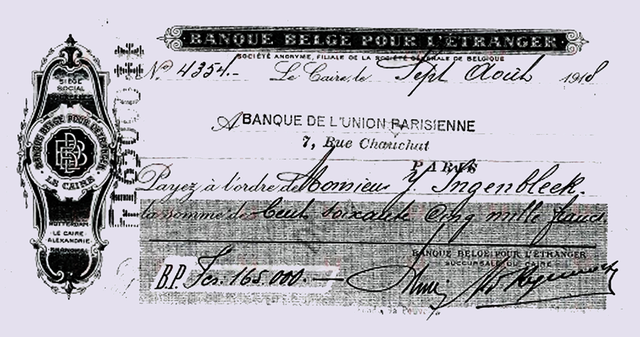 BANQUE BELGE POUR L'ÉTRANGER
SOCIÉTÉ ANONYME, FILIALE DE LA SOCIÉTÉ GÉNÉRALE DE BELGIQUE
No 4354.- Le Caire, le Sept Août 1918
A BANQUE DE L'UNION PARISIENNE
7, Rue Chauchat
PARIS
Payez à l'ordre de Monsieur J. Ingenbleek.
la somme de Cent soixante cinq mille francs
BANQUE BELGE POUR L'ÉTRANGER
SUCCURSALE DU CAIRE
B.P. Fcs. 165.000.-
SIÈGE
SOCIAL
BANQUE BELGE POUR L'ÉTRANGER
BBE
LE CAIRE
ROTTERDAM
LE CAIRE
ALEXANDRIE
165000